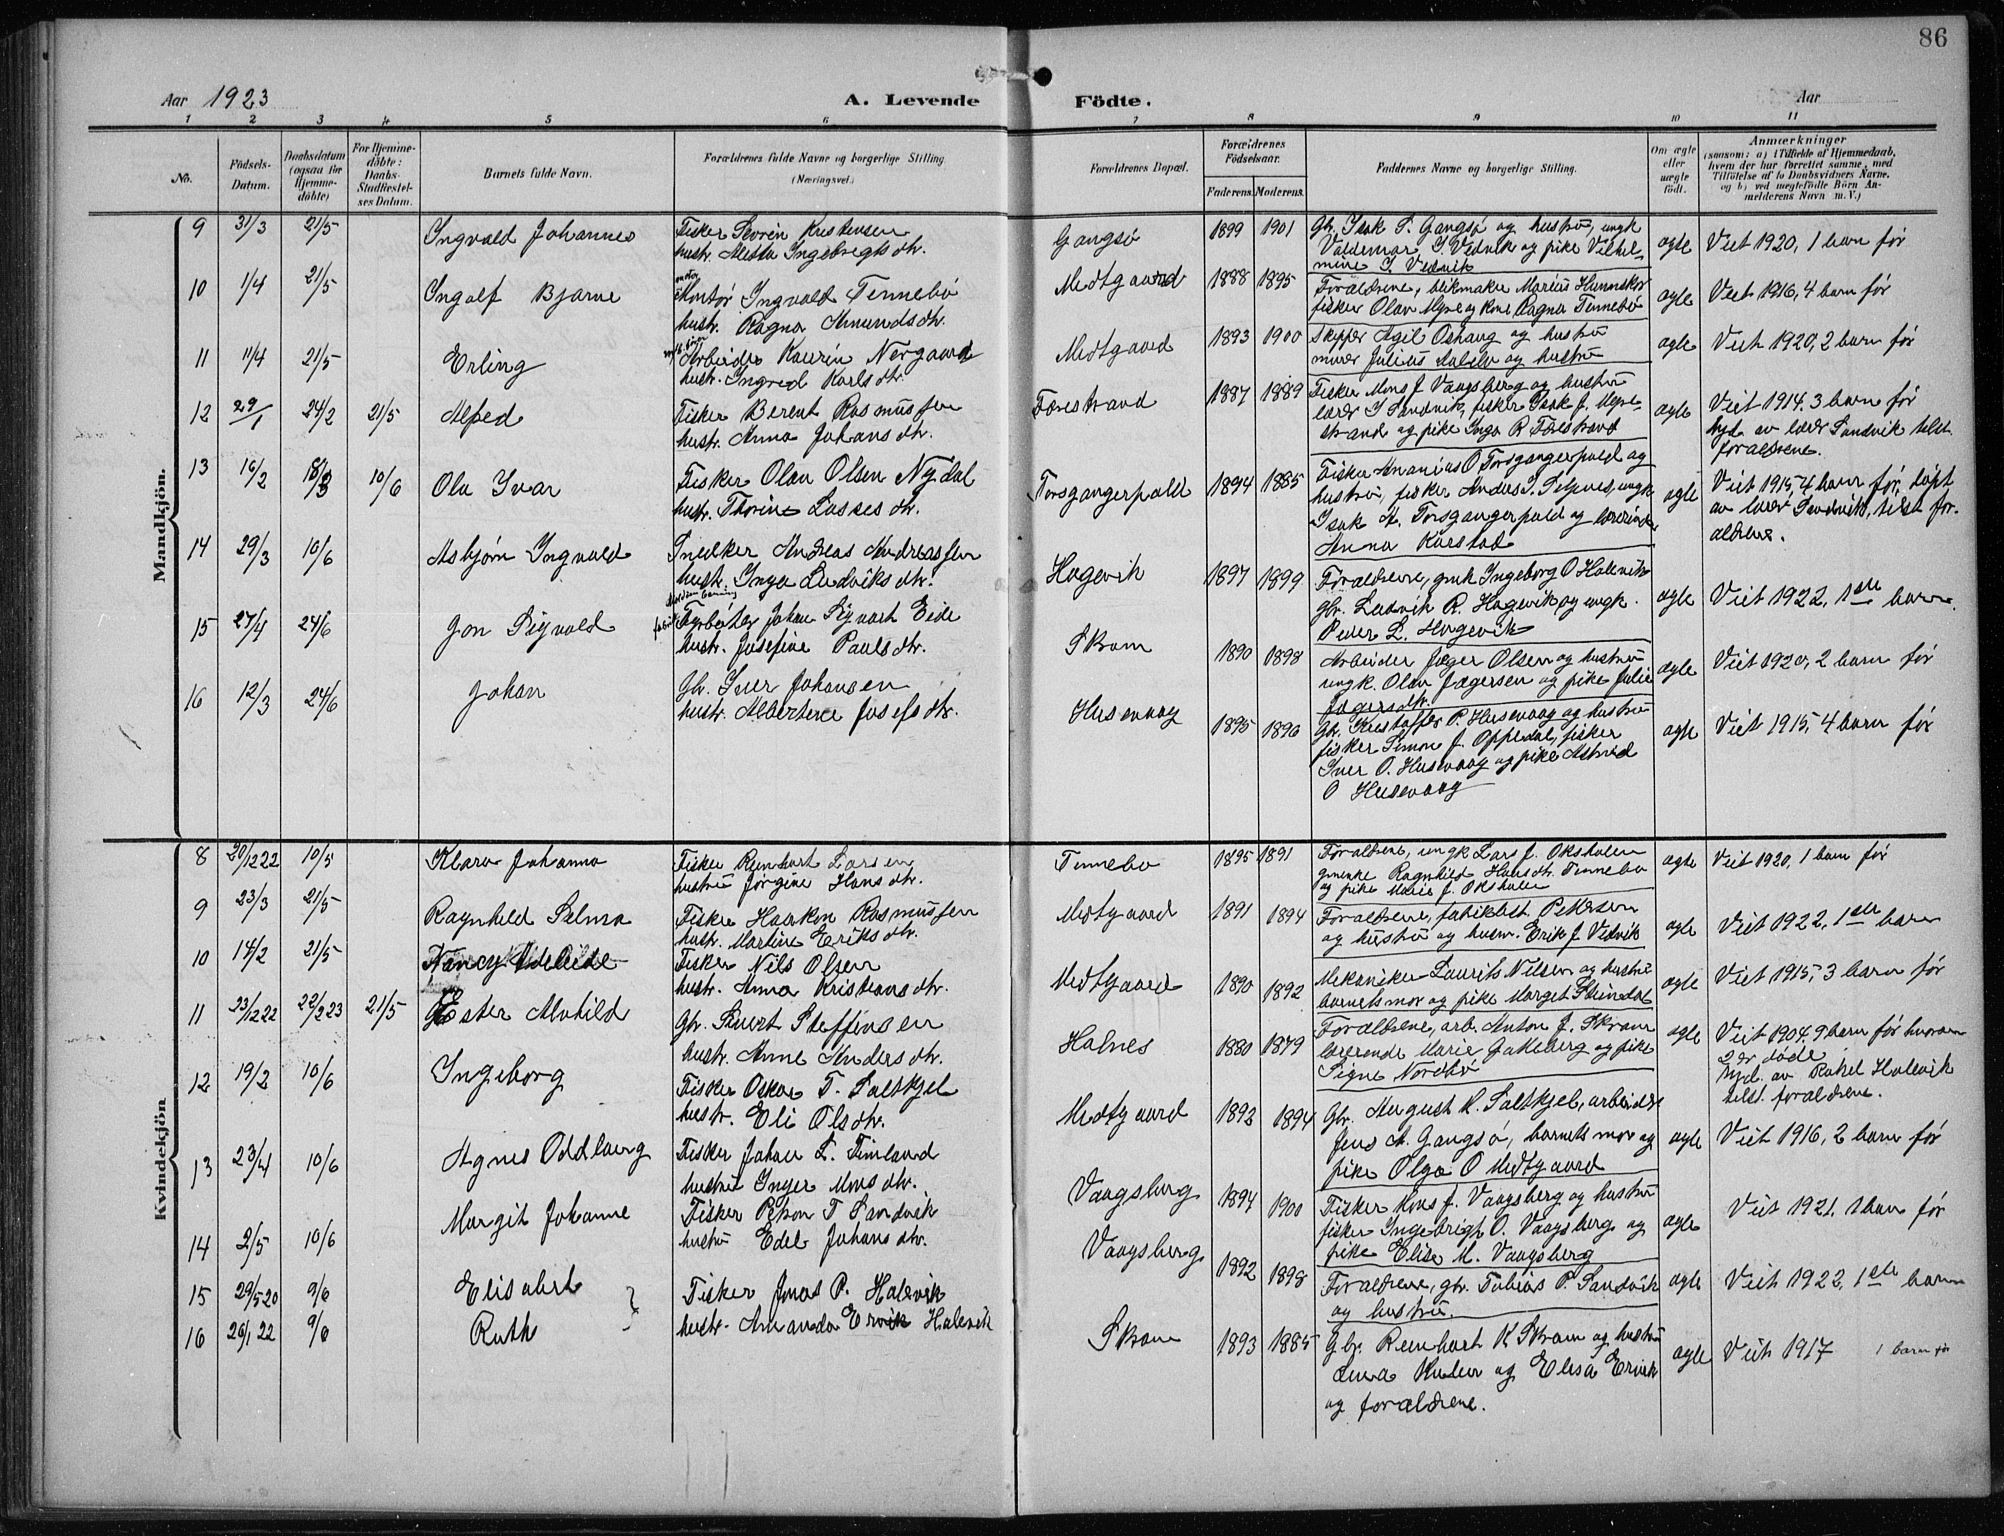 86
Aar 1923 A. Levende Födte. Aar
1 2 3 4 5 6 7 8 9 10 11
No. Födsels-Datum. Daabsdatum (ogsaa for Hjemme-döbte) For Hjemme-döbte: Daabs-Stadfæstel-ses Datum. Barnets fulde Navn. Forældrenes fulde Navne og borgerlige Stilling. (Næringsvei.) Forældrenes Bopæl. Forældrenes Födselsaar. Faderens. Moderens. Faddernes Navne og borgerlige Stilling. Om ægte eller uægte födt. Anmærkninger (saasom: a) i Tilfælde af Hjemmedaab, hvem der har forrettet samme, med Tilföielse af to Daabsvidners Navne, og b) ved uægtefödte Börn An-melderens Navn m. V.)
Mandkjön.
9 31/3 21/5 Ingvald Johannes Fisker Sevrin Kristensen Gangsø 1899 1901 Gbr. Isak S. Gangsø og hustru, ungk ægte Viet 1920, 1 barn før
hustr. Mesta Ingebrigtsdtr. Valdemar J. Vedvik og pike Vilhel-
mine J. Vedvik
10 1/4 21/5 Ingolf Bjarne Montør Ingvald Tennebø Medtgaard 1888 1895 Forældrene, blikmaker Marius Hunnskor ægte Viet 1916, 4 barn før
hustr. Ragna Amundsdtr. fisker Olav Myre og kone Ragna Tennebø
11 11/4 21/5 Erling Arbeider Kaurin Nergaard Medtgaard 1893 1900 Skipper Agil Oshaug og hustru ægte Viet 1920, 2 barn før
hustr. Ingrid Karlsdtr. murer Julius Dalsbø og hustru
12 29/1 24/2 21/5 Alfred Fisker Berent Rasmussen Færestrand 1887 1889 Fisker Mons J. Vaagsberg og hustru ægte Viet 1914, 3 barn før
hustr. Anna Johansdtr. lærer J Sandvik, fisker Isak J. Myre- hjd. av lærer Sandvik, tilst.
strand og pike Inga R Færestrand forældrene.
13 16/2 18/3 10/6 Ola Ivar Fisker Olav Olsen Nydal Torsgangerpold 1894 1885 Fisker Ananias O Torsgangerpold og ægte Viet 1915, 4 barn før, døpt
hustr. Thorine Lassesdtr. hustru, fisker Anders S. Selpenes, ungk av lærer Sandvik, tilst. for-
Isak A. Torsgangerpold og lærerinde ældrene.
Anna Kårstad
14 29/3 10/6 Asbjørn Ingvald Snedker Andreas Andreassen Hagevik 1897 1899 Forældrene, gmk Ingeborg O Halevik ægte Viet 1922, 1ste barn.
hustr. Inga Ludviksdtr. gbr. Ludvik R. Hagevik og ungk.
Peder L. Hagevik
15 27/4 24/6 Jon Sigvald Fyrbøter Johan Sigvart Eide Skram 1890 1898 Arbeider Jæger Olsen og hustru ægte Viet 1920, 2 barn før
hustr. Josefine Paulsdtr. ungk. Olav Jægersen og pike Julie
Jægersdtr.
16 12/3 24/6 Johan Gbr. Iver Johansen Husevaag 1895 1890 Gbr. Kristoffer P. Husevaag og hustru ægte Viet 1915, 4 barn før
hustr. Albertine Josefsdtr. fisker Simon J. Oppedal, fisker
Iver O. Husevaag og pike Astrid
O Husevaag
Kvindekjön
8 20/12 22 10/5 Klara Johanna Fisker Reinhart Larsen Tennebø 1895 1891 Forældrene, ungk Lars J. Oksholen ægte Viet 1920, 1 barn før
hustru Jørgine Hansdtr. gmenke Ragnhild Hansdtr. Tennebø
og pike Marie J. Oksholen
9 23/3 21/5 Ragnhild Selma Fisker Haakon Rasmussen Medtgaard 1891 1894 Forældrene, fabrikbest. Petersen ægte Viet 1922, 1ste barn
hustr. Martine Eriksdtr. og hustru og husm. Erik J. Vedvik
10 14/2 21/5 Nancy Adeleide Fisker Nils Olsen Medtgaard 1890 1892 Mekaniker Laurits Nilsen og hustru ægte Viet 1915, 3 barn før
hustr. Anna Kristiansdtr. barnets mor og pike Marget Steindal
11 23/12 22 22/2 23 21/5 Ester Alvhild Gbr. Sivert Steffensen Halnes 1880 1879 Forældrene, arb. Anton J. Skram ægte Viet 1904, 9 barn før hvorav
hustr. Anne Andersdtr. lærerinde Marie Gakeberg og pike 2 er døde
Signe Nordbø hjd. av Rakel Halevik
tilst. forældrene.
12 19/2 10/6 Ingeborg Fisker Oskar T. Saltkjel Medtgaard 1892 1894 Gbr. August K. Saltkjel, arbeider ægte Viet 1916, 2 barn før
hustr. Eli Olsdtr. Jens A. Gangsø, barnets mor og
pike Olga O Medtgaard
13 23/4 10/6 Agnes Oddlaug Fisker Johan L. Timland Vaagsberg 1894 1900 Fisker Mons J. Vaagsberg og hustru ægte Viet 1921, 1 barn før
hustru Inger Monsdtr. fisker Ingebrigt O. Vaagsberg og
pike Elise M. Vaagsberg
14 2/5 10/6 Margit Johanne Fisker Peron T Sandvik Vaagsberg 1892 1898 Forældrene, gbr. Tobias P. Sandvik ægte Viet 1922, 1ste barn
hustru Edel Johansdtr. og hustru.
15 29/5 20 9/6 Elisabet Fisker Jonas P. Halevik Skram 1893 1885 Gbr. Reinhart K Skram og hustru ægte Viet 1917 1 barn før
16 26/1 22 9/6 Ruth hustr. Amanda Ervik Halevik og Elisa Ervik
og forældrene.